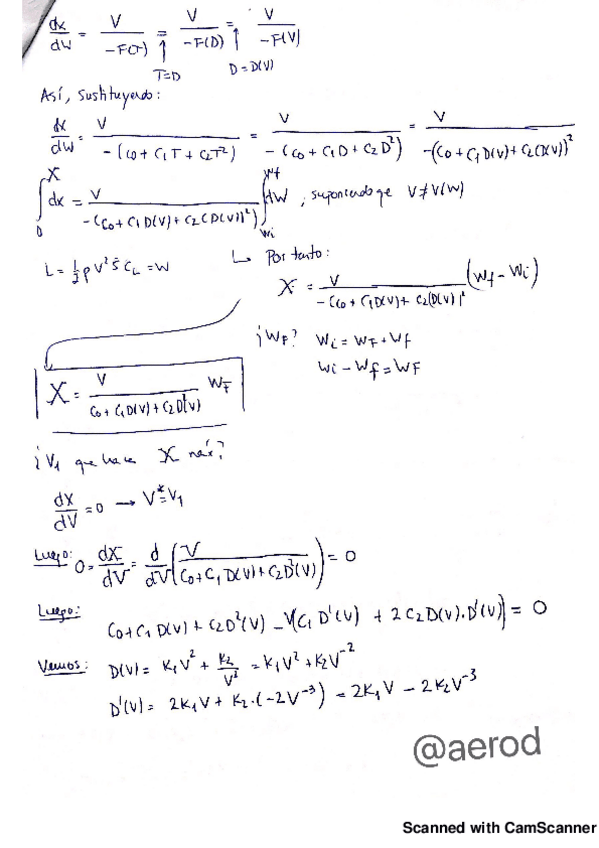 dx/dW = V/-F(T) = V/-F(D) = V/-F(V)
T=D D=D(V)
Así, sustituyendo:
dx/dW = V/-(C0 + C1T + C2T²) = V/-(C0 + C1D + C2D²) = V/-(C0 + C1D(V) + C2(D(V))²
∫0^X dx = V/-(C0 + C1D(V) + C2(D(V))²) ∫Wi^Wf dW , suponiendo qe V≠V(W)
L = 1/2 ρV²SCL = W ↳ Por tanto:
X = V/-(C0 + C1D(V) + C2(D(V))² (Wf - Wi)
¿WF? Wi = WF + Wf
Wi - Wf = WF
X = V/C0 + C1D(V) + C2D²(V) WF
¿V1 que hace X máx?
dX/dV = 0 → V* = V1
Luego: 0 = dX/dV = d/dV (V/C0 + C1D(V) + C2D²(V)) = 0
Luego: C0 + C1D(V) + C2D²(V) - V(C1D'(V) + 2C2D(V)·D'(V)) = 0
Vemos: D(V) = K1V² + K2/V² = K1V² + K2V⁻²
D'(V) = 2K1V + K2·(-2V⁻³) = 2K1V - 2K2V⁻³
@aerod
Scanned with CamScanner